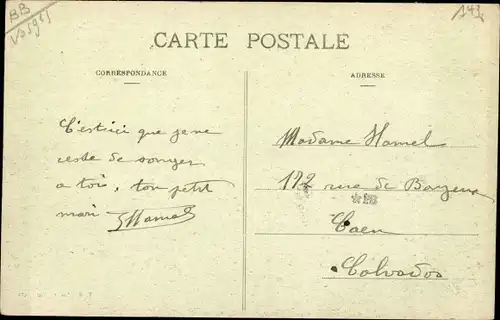 BB
CARTE POSTALE
CORRESPONDANCE
ADRESSE
C'est ici que je ne
cesse de songer
a toi, ton petit
mari GHamel
Madame Hamel
172 rue de Bayeux
Caen
Calvados